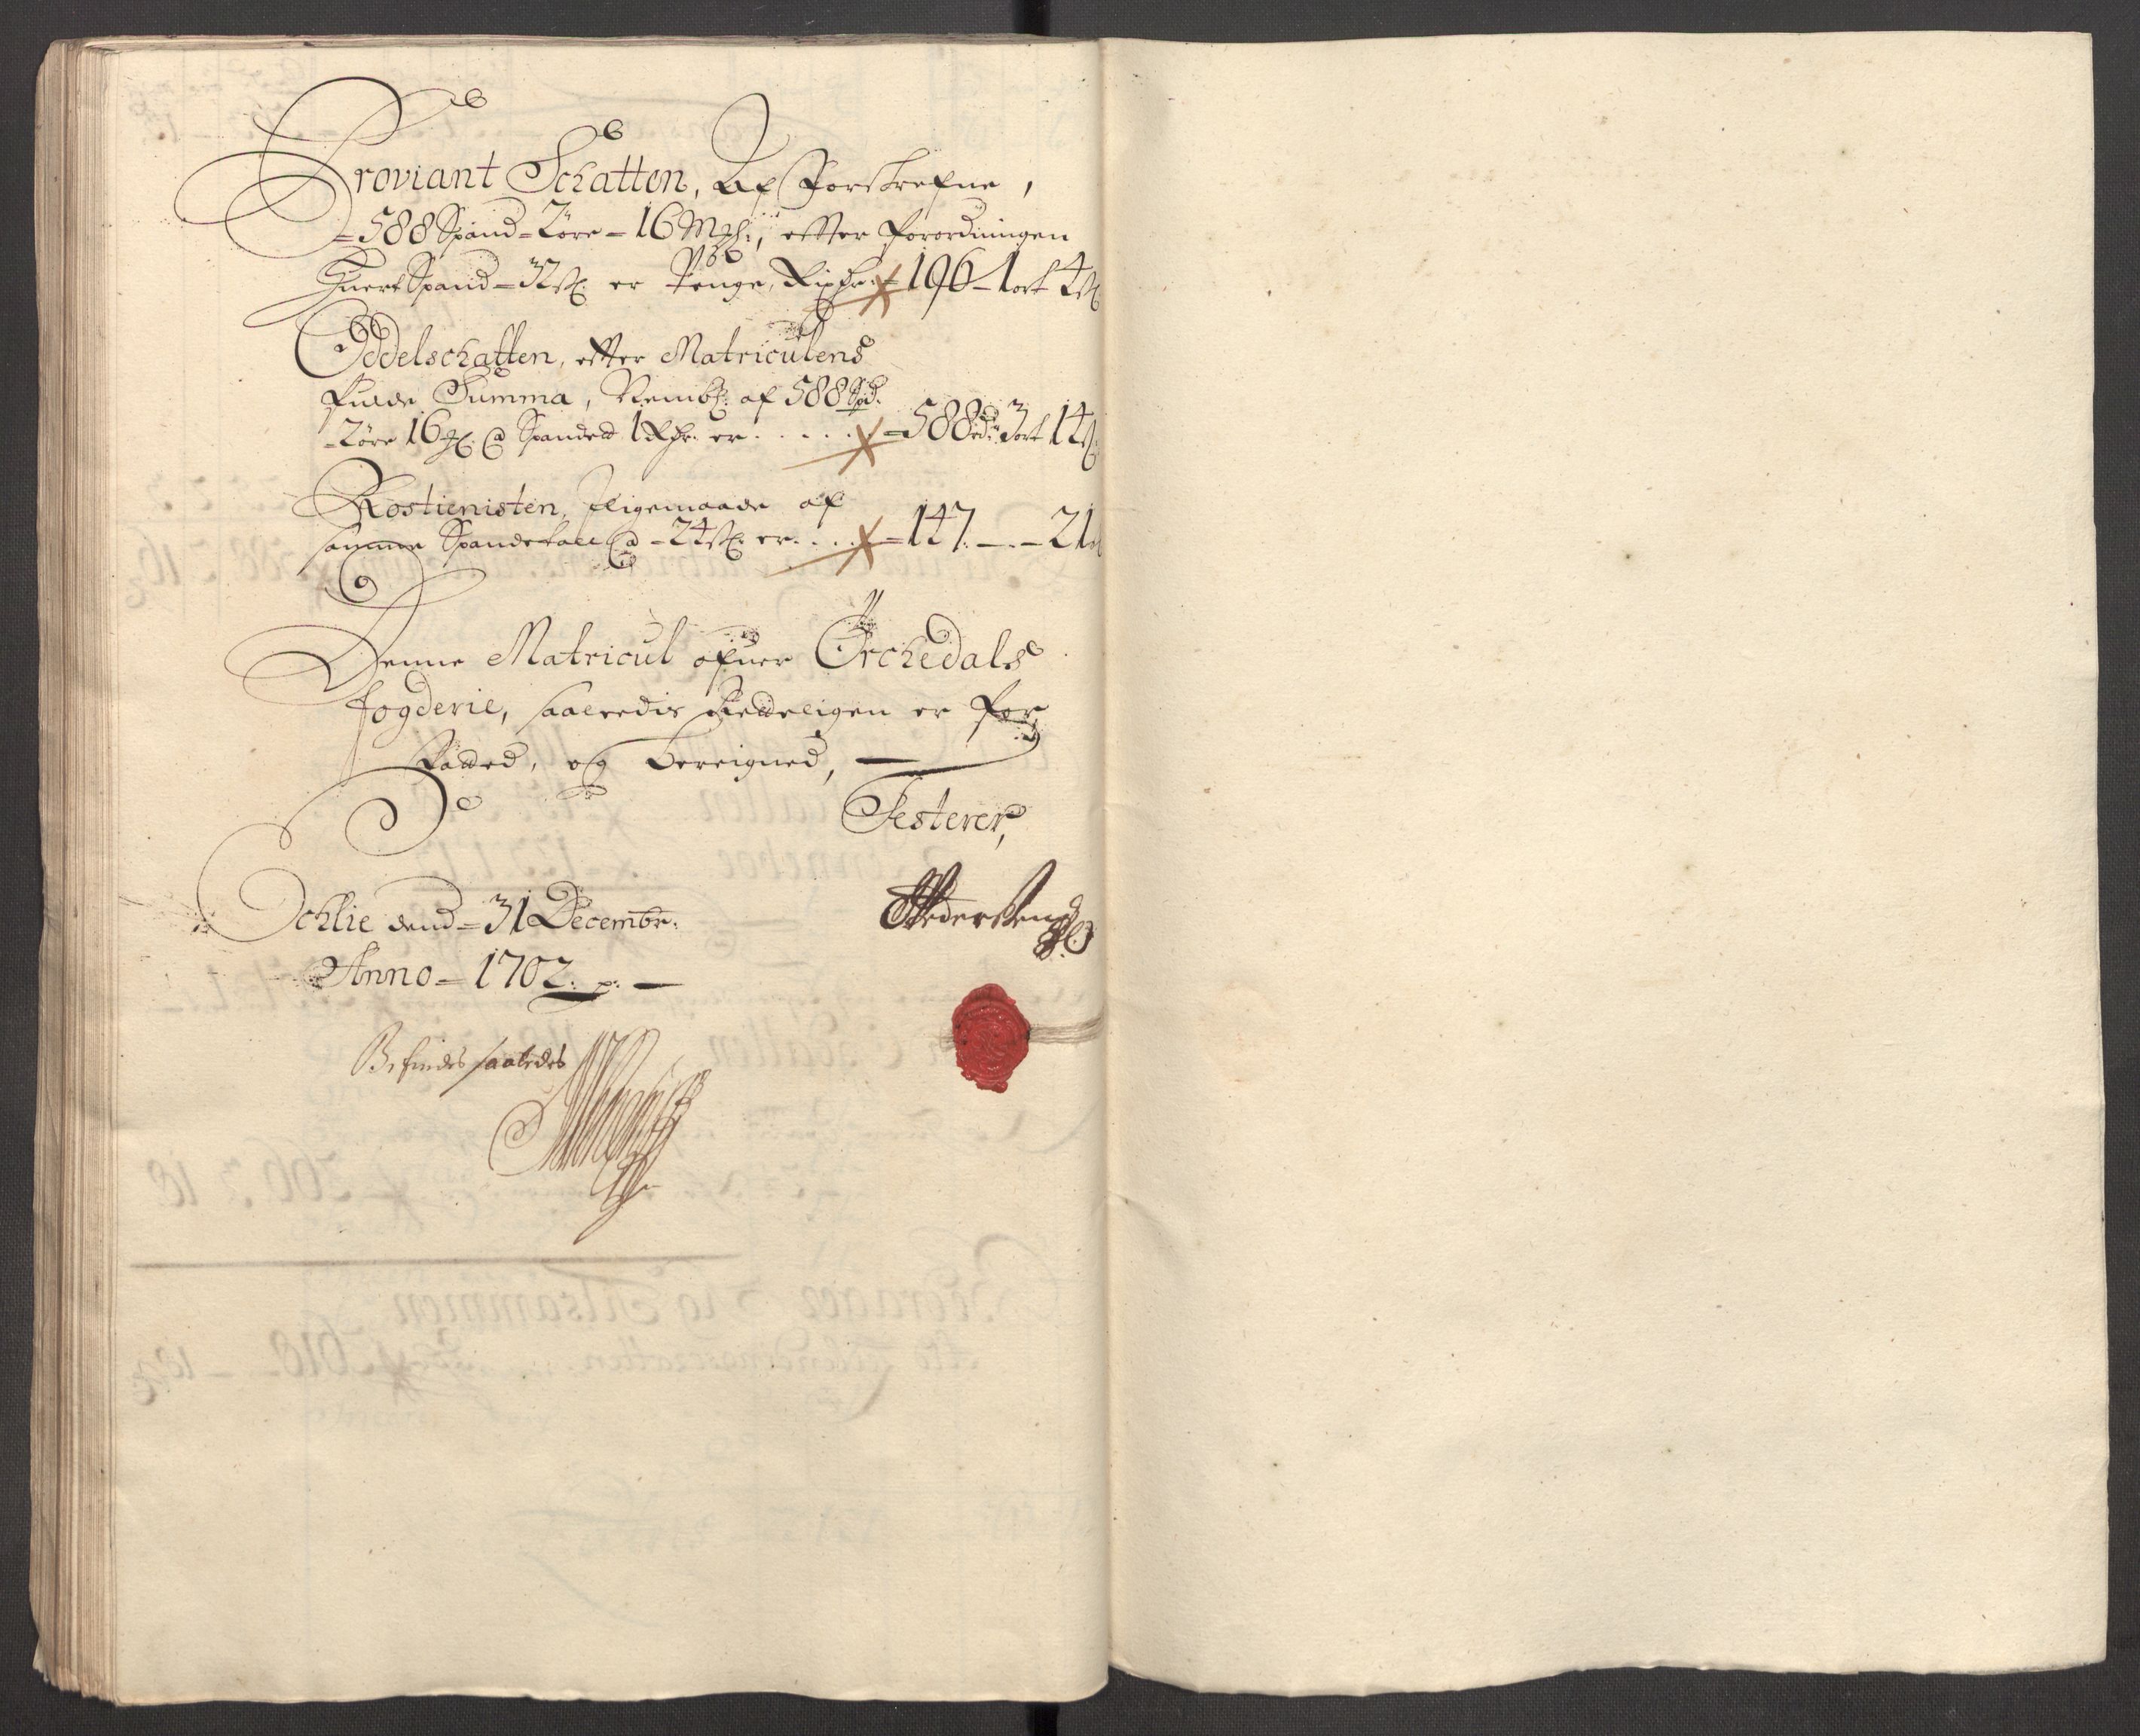 Proviant Schatten, Af Forskrefne,
588 Spand - 2 øre - 16 Mkl:, effter forordningen
Huert Spand - 32 sk er Penge, Rixdr - 196 - 1 ort 4 sk
Oddelschatten, effter Matriculens
fulde Summa, Nembl: af 588 Spd.
2 øre 16 Mkl. @ Spandett 1 Rdr. er . . . . . - 588 rd 3 ort 14 sk
Rostienisten, Jligemaade af
samme Spandetall @ - 24 sk er . . . - 147. - . - 21
Denne Matricul ofuer Örchedals
fogderie, saaledis Retteligen er for
Fatted, og bereigned,
Testerer,
Ochlie dend - 31 Decembr:
Anno - 1702.
Befindes saaledes